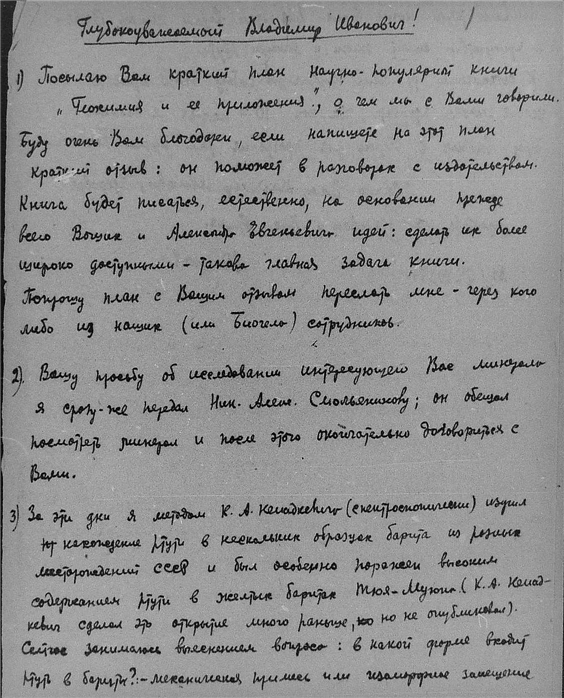 Глубокоуважаемый Владимир Иванович!
1) Посылаю Вам краткий план научно-популярной книги
„Геохимия и ее приложения", о чем мы с Вами говорили.
Буду очень Вам благодарен, если напишете на этот план
краткий отзыв: он поможет в разговорах с издательством.
Книга будет писаться, естественно, на основании прежде
всего Ваших и Александра Евгеньевича идей: сделать их более
широко доступными – такова главная задача книги.
Попрошу план с Вашим отзывом переслать мне – через кого
либо из наших (или Биогела) сотрудников.
2) Вашу просьбу об исследовании интересующего Вас минерала
я сразу-же передал Ник. Алекс. Смольянинову; он обещал
посмотреть минерал и после этого окончательно договориться с
Вами.
3) За эти дни я методом К. А. Ненадкевича (спектроскопически) изучил
нахождение ртути в нескольких образцах барита из разных
месторождений СССР и был особенно поражен высоким
содержанием ртути в желтых баритах Тюя-Муюна (К. А. Ненад-
кевич сделал это открытие много раньше, но не опубликовал).
Сейчас занимаюсь выяснением вопроса: в какой форме входит
ртуть в бариты?:– механическая примесь или изоморфное замещение